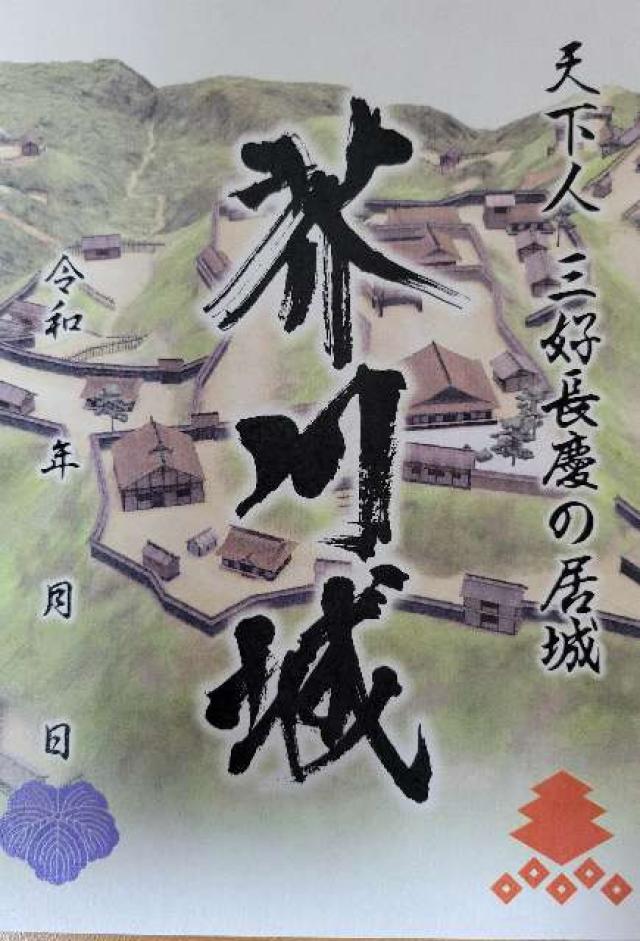 天下人 三好長慶の居城
芥川城
令和 年 月 日